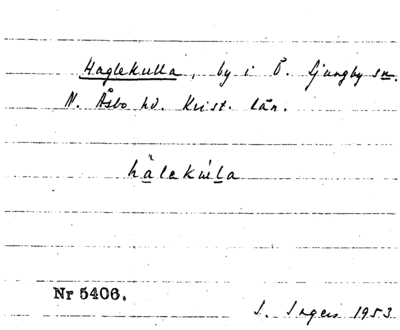 Haglekulla, by i Ö. Ljungby sn.
N. Åsbo hd. Krist. län.
hàlekùla
Nr 5406.
I. Ingers 1953